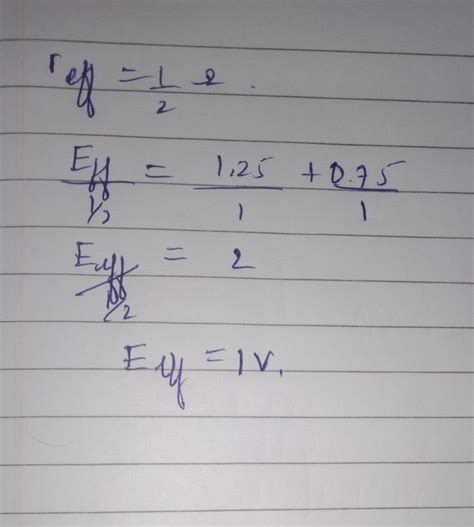 r eff = 1/2 Ω.
Eeff / 1/2 = 1.25/1 + 0.75/1
Eeff / 1/2 = 2
Eeff = 1V.